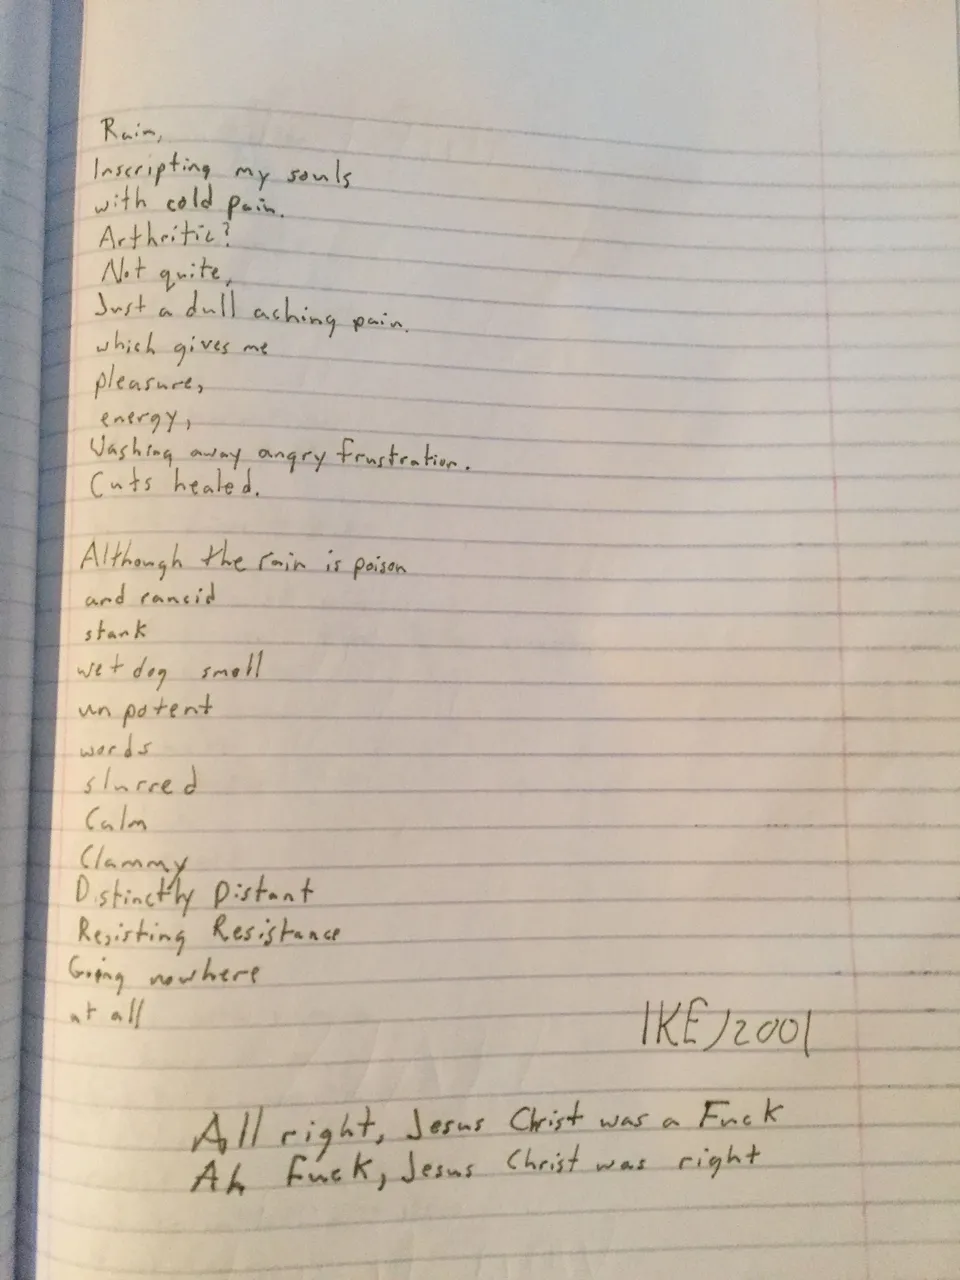 Rain,
Inscripting my souls
with cold pain.
Arthritic?
Not quite,
Just a dull aching pain.
which gives me
pleasure,
energy,
Washing away angry frustration.
Cuts healed.
Although the rain is poison
and rancid
stank
wet dog smell
un potent
words
slurred
Calm
Clammy
Distinctly Distant
Resisting Resistance
Going nowhere
at all
IKE/2001
All right, Jesus Christ was a Fuck
Ah Fuck, Jesus Christ was right